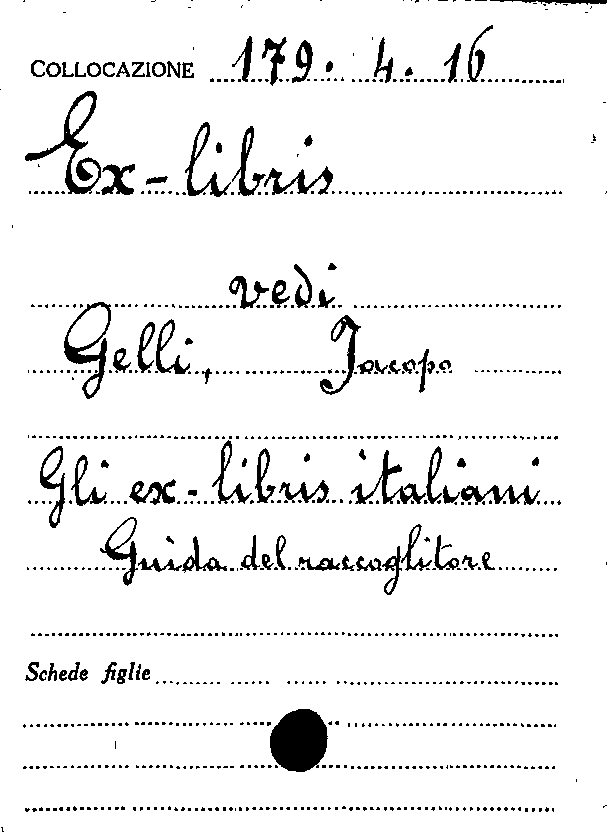 COLLOCAZIONE 179. 4. 16
Ex-libris
vedi
Gelli, Jacopo
Gli ex-libris italiani
Guida del raccoglitore
Schede figlie